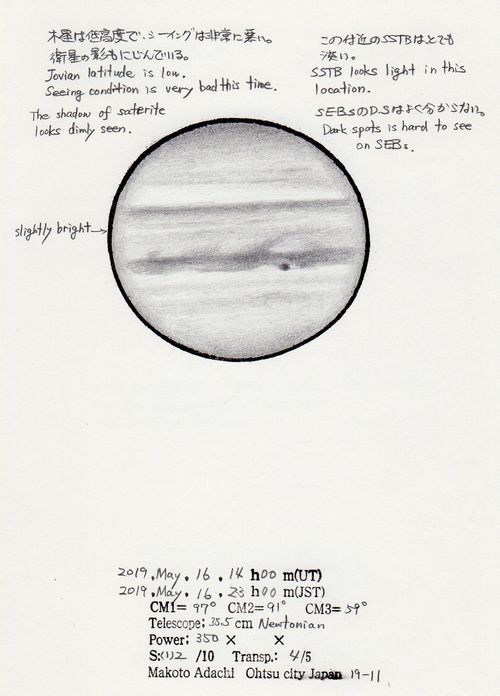 木星は低高度で、シーイングは非常に悪い。
衛星の影もにじんでいる。
Jovian latitude is low.
Seeing condition is very bad this time.
The shadow of saterite
looks dimly seen.
この付近のSSTBはとても
淡い。
SSTB looks light in this
location.
SEBsのD.Sはよく分からない。
Dark spots is hard to see
on SEBs.
slightly bright→
2019.May.16.14 h00 m(UT)
2019.May.16.23 h00 m(JST)
CM1= 97° CM2= 91° CM3= 59°
Telescope: 35.5 cm Newtonian
Power: 350 × ×
S:(1)2 /10 Transp.: 4/5
Makoto Adachi Ohtsu city Japan 19-11